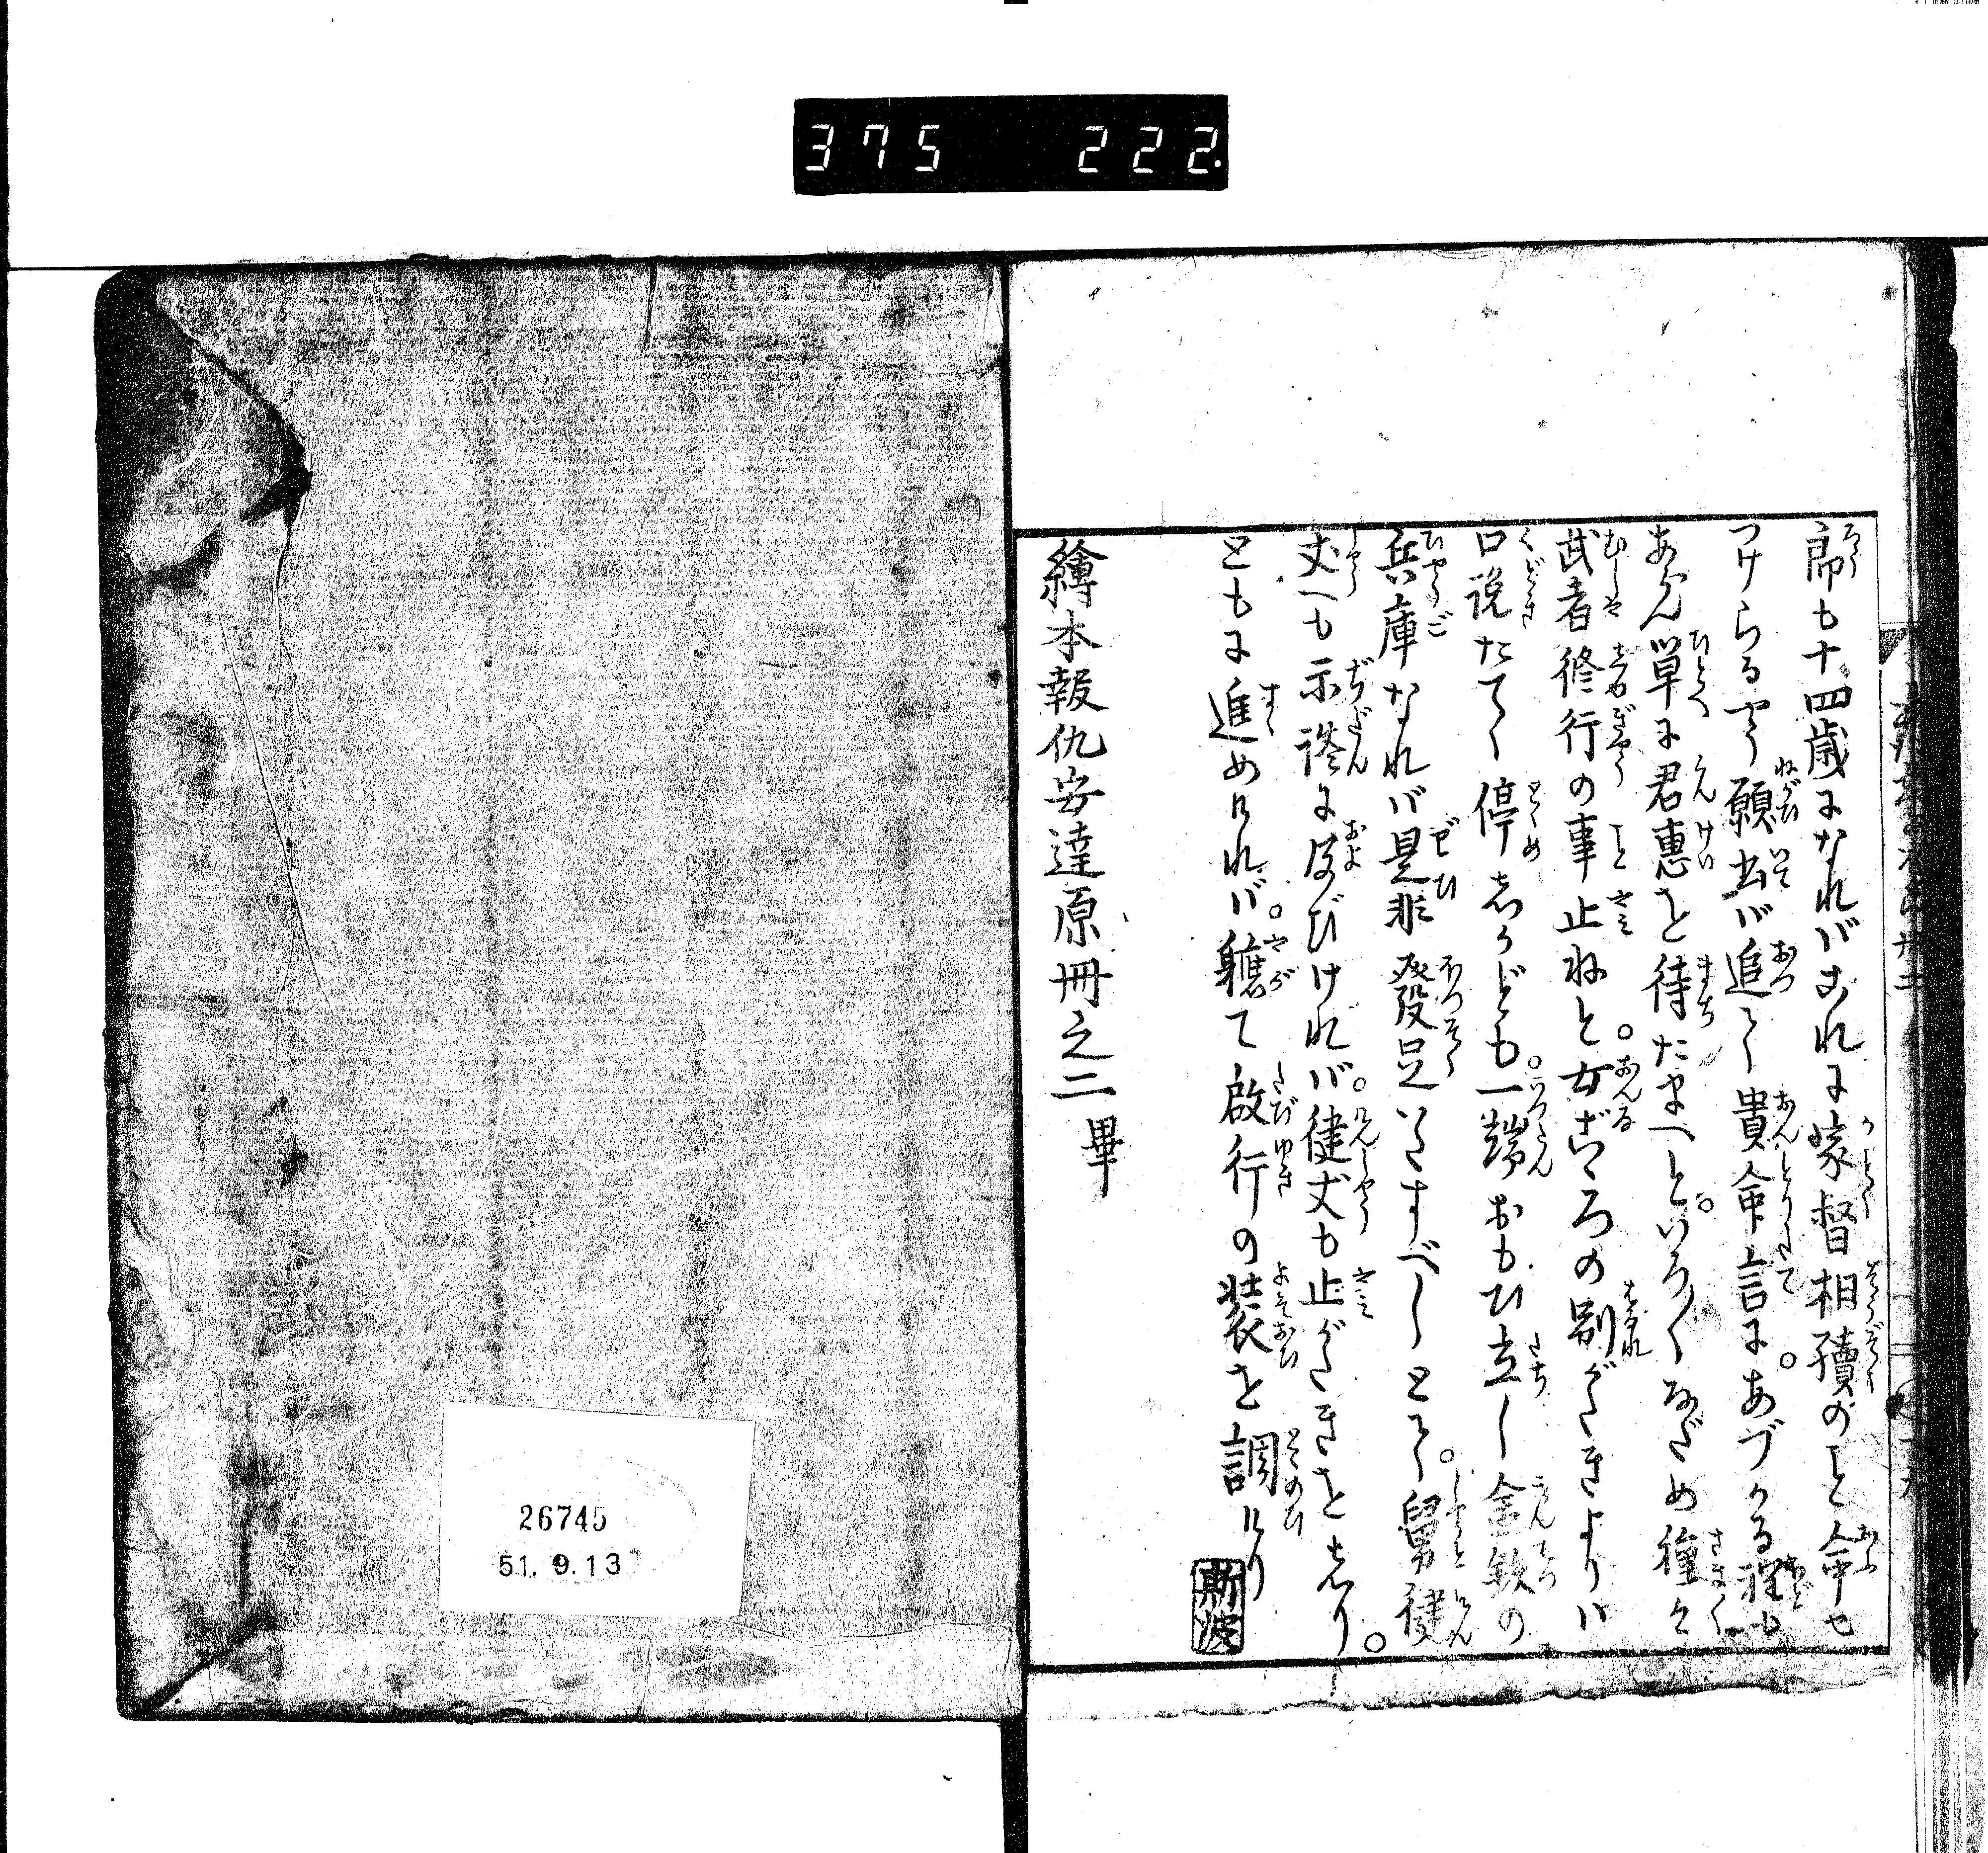 375 222.
郎も十四歳になればこれに家督相續のこと命せ
つけらるやう願出ば追て貴命言にあづかる程も
あらん単に君惠を待たまへと。いろ〳〵なだめ種々
武者修行の事止ねと女ごゝろの別がたきよりハ
口説たてゝ停しかども。一端おもひ立し金鉄の
兵庫なれば是非發足いたすべしとて。舅健
丈へも示談に及びけれバ。健丈も止がたきをしり。
ともに進めけれバ。軈て啟行の装を調けり
斯波
繪本報仇安達原冊之二畢
26745
51. 9. 13